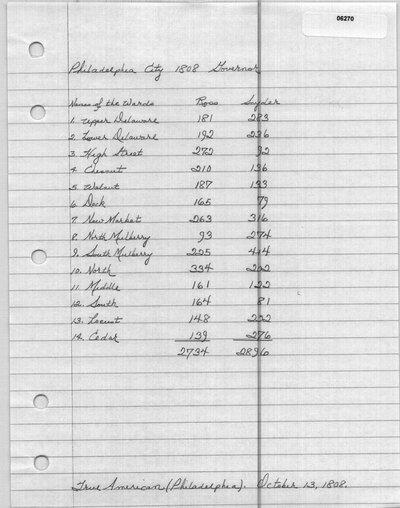 06270
Philadelphia City 1808 Governor
Names of the Wards Ross Snyder
1. Upper Delaware 181 283
2. Lower Delaware 192 236
3. High Street 272 92
4. Chesnut 210 136
5. Walnut 187 133
6. Dock 165 79
7. New Market 263 316
8. North Mulberry 93 274
9. South Mulberry 225 444
10. North 334 202
11. Middle 161 122
12. South 164 81
13. Locust 148 222
14. Cedar 139 276
2734 2896
True American (Philadelphia). October 13, 1808.